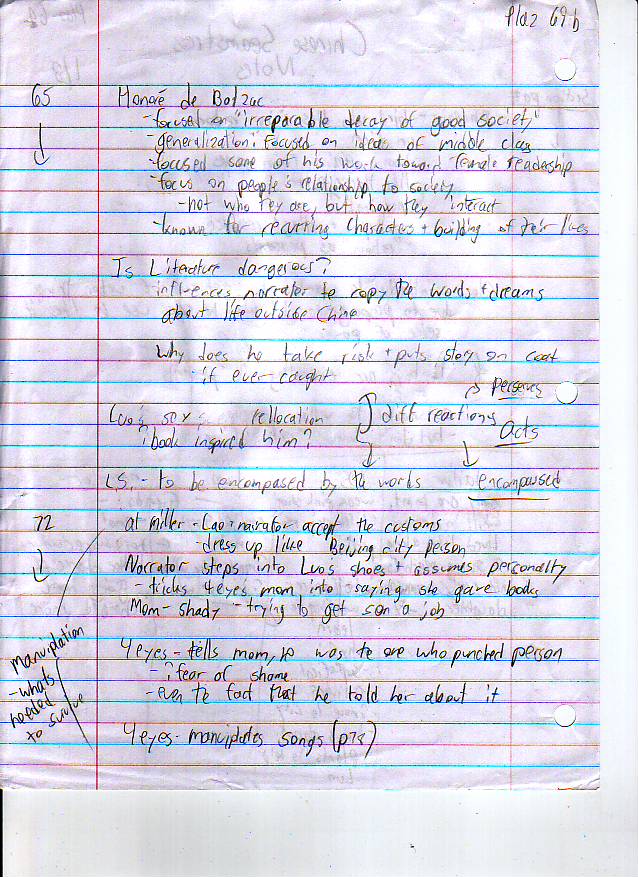 Plaz 69b
65
Honoré de Balzac
-focused on "irreparable decay of good society"
-generalization: focused on ideas of middle class
-focused some of his work toward female readership
-focus on people's relationship to society
-not who they are, but how they interact
-known for recurring characters + building of their lives
Is Literature dangerous?
influences narrator to copy the words + dreams
about life outside China
Why does he take risk + puts story on coat
if ever caught
→ Perserves
Luo's sex; rellocation diff reactions
book inspired him? Acts
LS. - to be encompased by the words encompassed
72
at Miller - Luo + narrator accept the customs
-dress up like Beijing city person
Narrator steps into Luo's shoes + assumes personalty
-tricks 4eyes mom into saying she gave books
Mom- shady - trying to get son a job
manuiplation
-whats
needed
to survive
4eyes - tells mom, was the one who punched person
-? fear of shame
-even the fact that he told her about it
4eyes- manuiplates songs